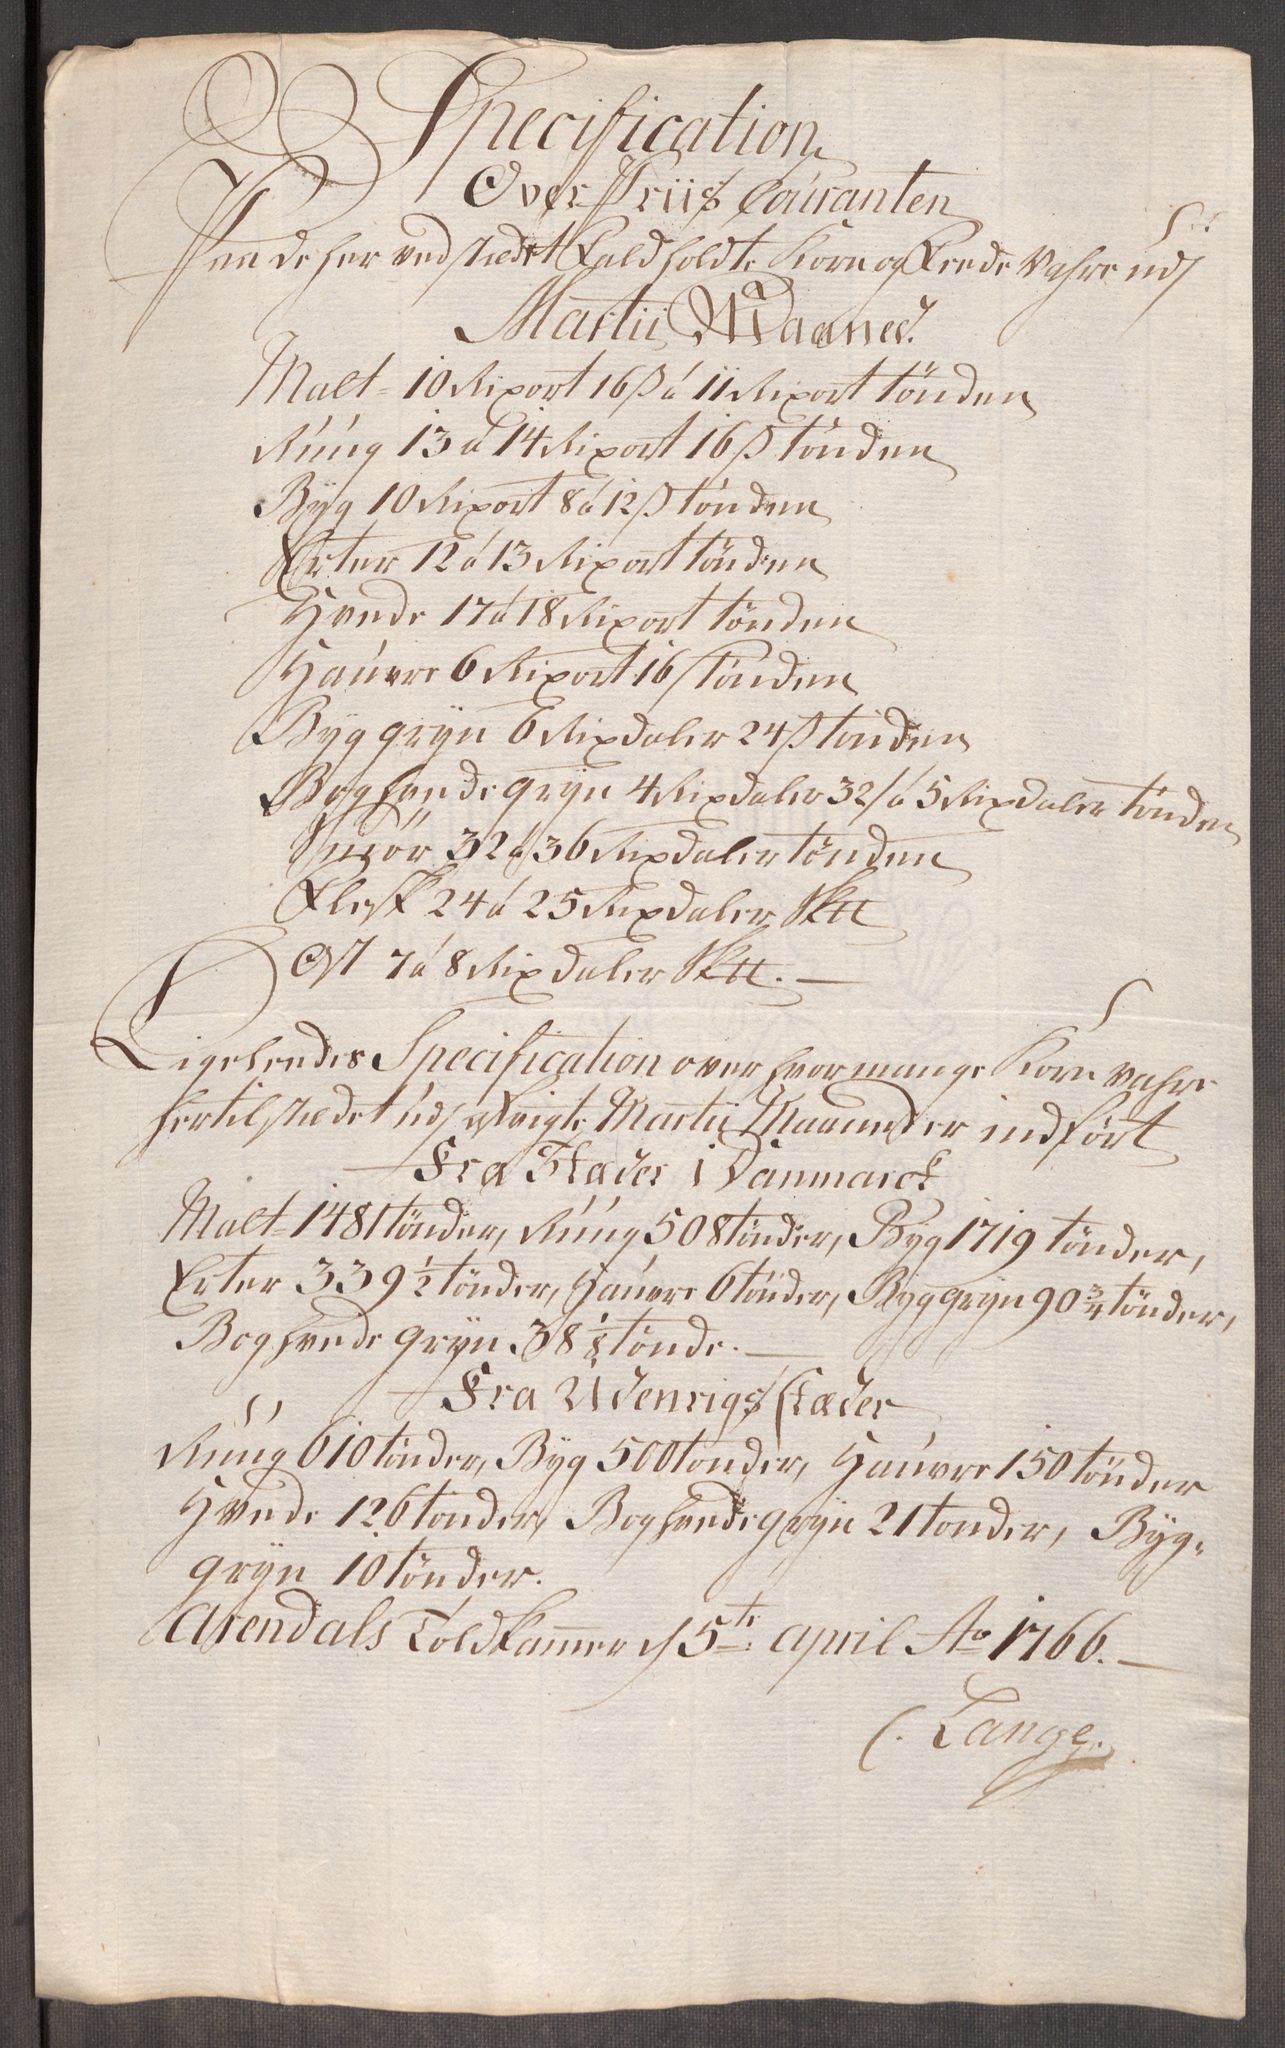 Specification
Over Priis Couranten
Paa de her ved stædet Faldholdte Korn og Feede Vahre udj
Martii Maaned.
Malt - 10 Rixort 16 ß á 11 Rixort tönden
Rúug 13 á 14 Rixort 16 ß tönden
Byg 10 Rixort 8 á 12 ß tönden
Erter 12 á 13 Rixort tönden
Hvede 17 á 18 Rixort tönden
Haúvre 6 Rixort 16 ß tönden
Byg gryn 6 Rixdaler 24 ß tönden
Boghvede gryn 4 Rixdaler 32 ß á 5 Rixdaler tönden
Smör 32 á 36 Rixdaler tönden
Flesk 24 á 25 Rixdaler Sktt
Ost 7 á 8 Rixdaler Sktt. —
Ligeleedes Specification over hvor mange Korn vahre
hertil stædet udj Martii Maaneder indfört
Fra Stæder i Danmarck
Malt - 1481 tönder, Rúug 508 tönder, Byg 1719 tönder,
Erter 339 1/2 tönder, Haúvre 6 tönder, Byg gryn 90 3/4 tönder,
Boghvede gryn 38 1/8 tönde. —
Fra Udenrigs Stæder
Rúug 610 tönder, Byg 500 tonder, Haúvre 150 tönder
Hvede 126 tonder, Boghvede gryn 21 tonder, Byg-
gryn 10 tönder.
Arendals Toldkammer d 5te April Ao 1766. —
C. Lange.